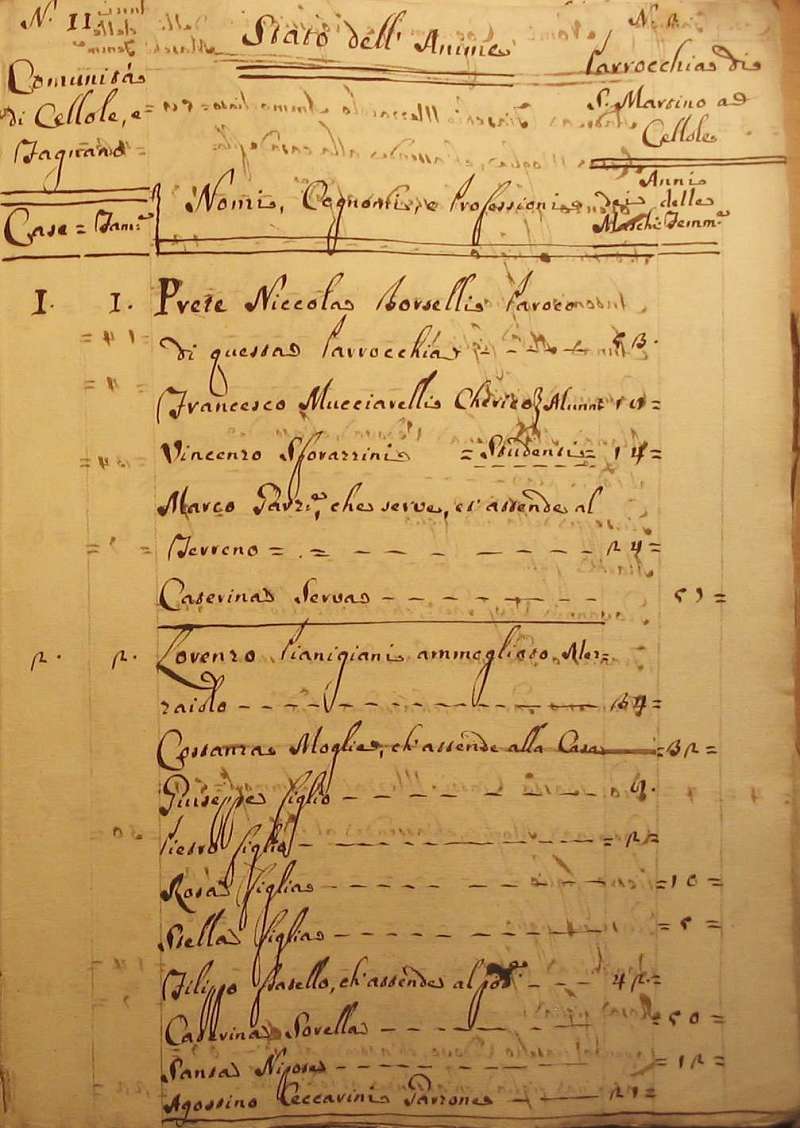 N. 11
Stato dell' Anime
N. 2.
Comunità
di Cellole, e
Fagnano
Parrocchia di
S. Martino a
Cellole
Case = Fam.e
Nomi, Cognomi, e Professioni
Anni
dei delle
Maschi Femm.e
1. 1. Prete Niccola Borselli Paroco
di questa Parrocchia - - - 53.
Francesco Mucciarelli Cherico Alunni 19 =
Vincenzo Sforazzini = Studenti = 14 =
Marco Garz.e, che serve, et attende al
Terreno = . = - - - - - - 24 =
Caterina Serva - - - - - - - 59 =
2. 2. Lorenzo Pianigiani ammogliato Mez=
zaiolo - - - - - - - - - 39 =
Costanza Moglie, ch'attende alla Casa = 32 =
Giuseppe figlio - - - - - - -
Pietro figlio - - - - - - - = 2 =
Rosa figlia - - - - - - - = 10 =
Stella figlia - - - - - - - = 5 =
Filippo fratello, ch'attende al - - - 42 =
Caterina Sorella - - - - - - = 50 =
Santa Nipote - - - - - - = 12 =
Agostino Ceccarini Garzone - - - 21 =